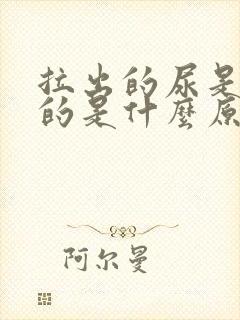 拉出的尿是
的是什麼原
阿尔曼